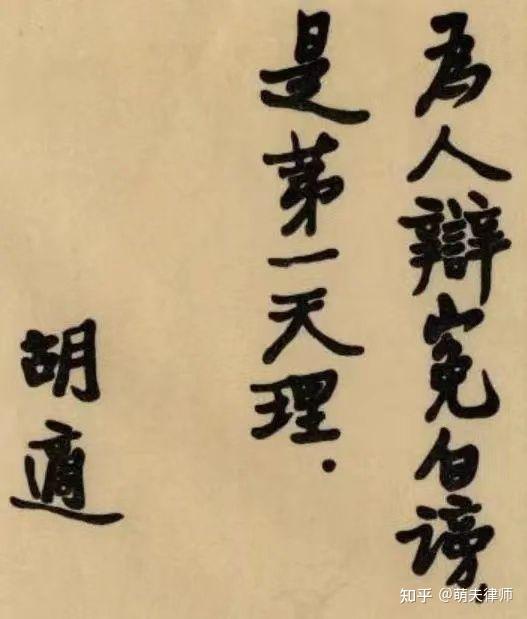 為人辯冤白謗.
是第一天理.
胡適
知乎 @萌夫律师